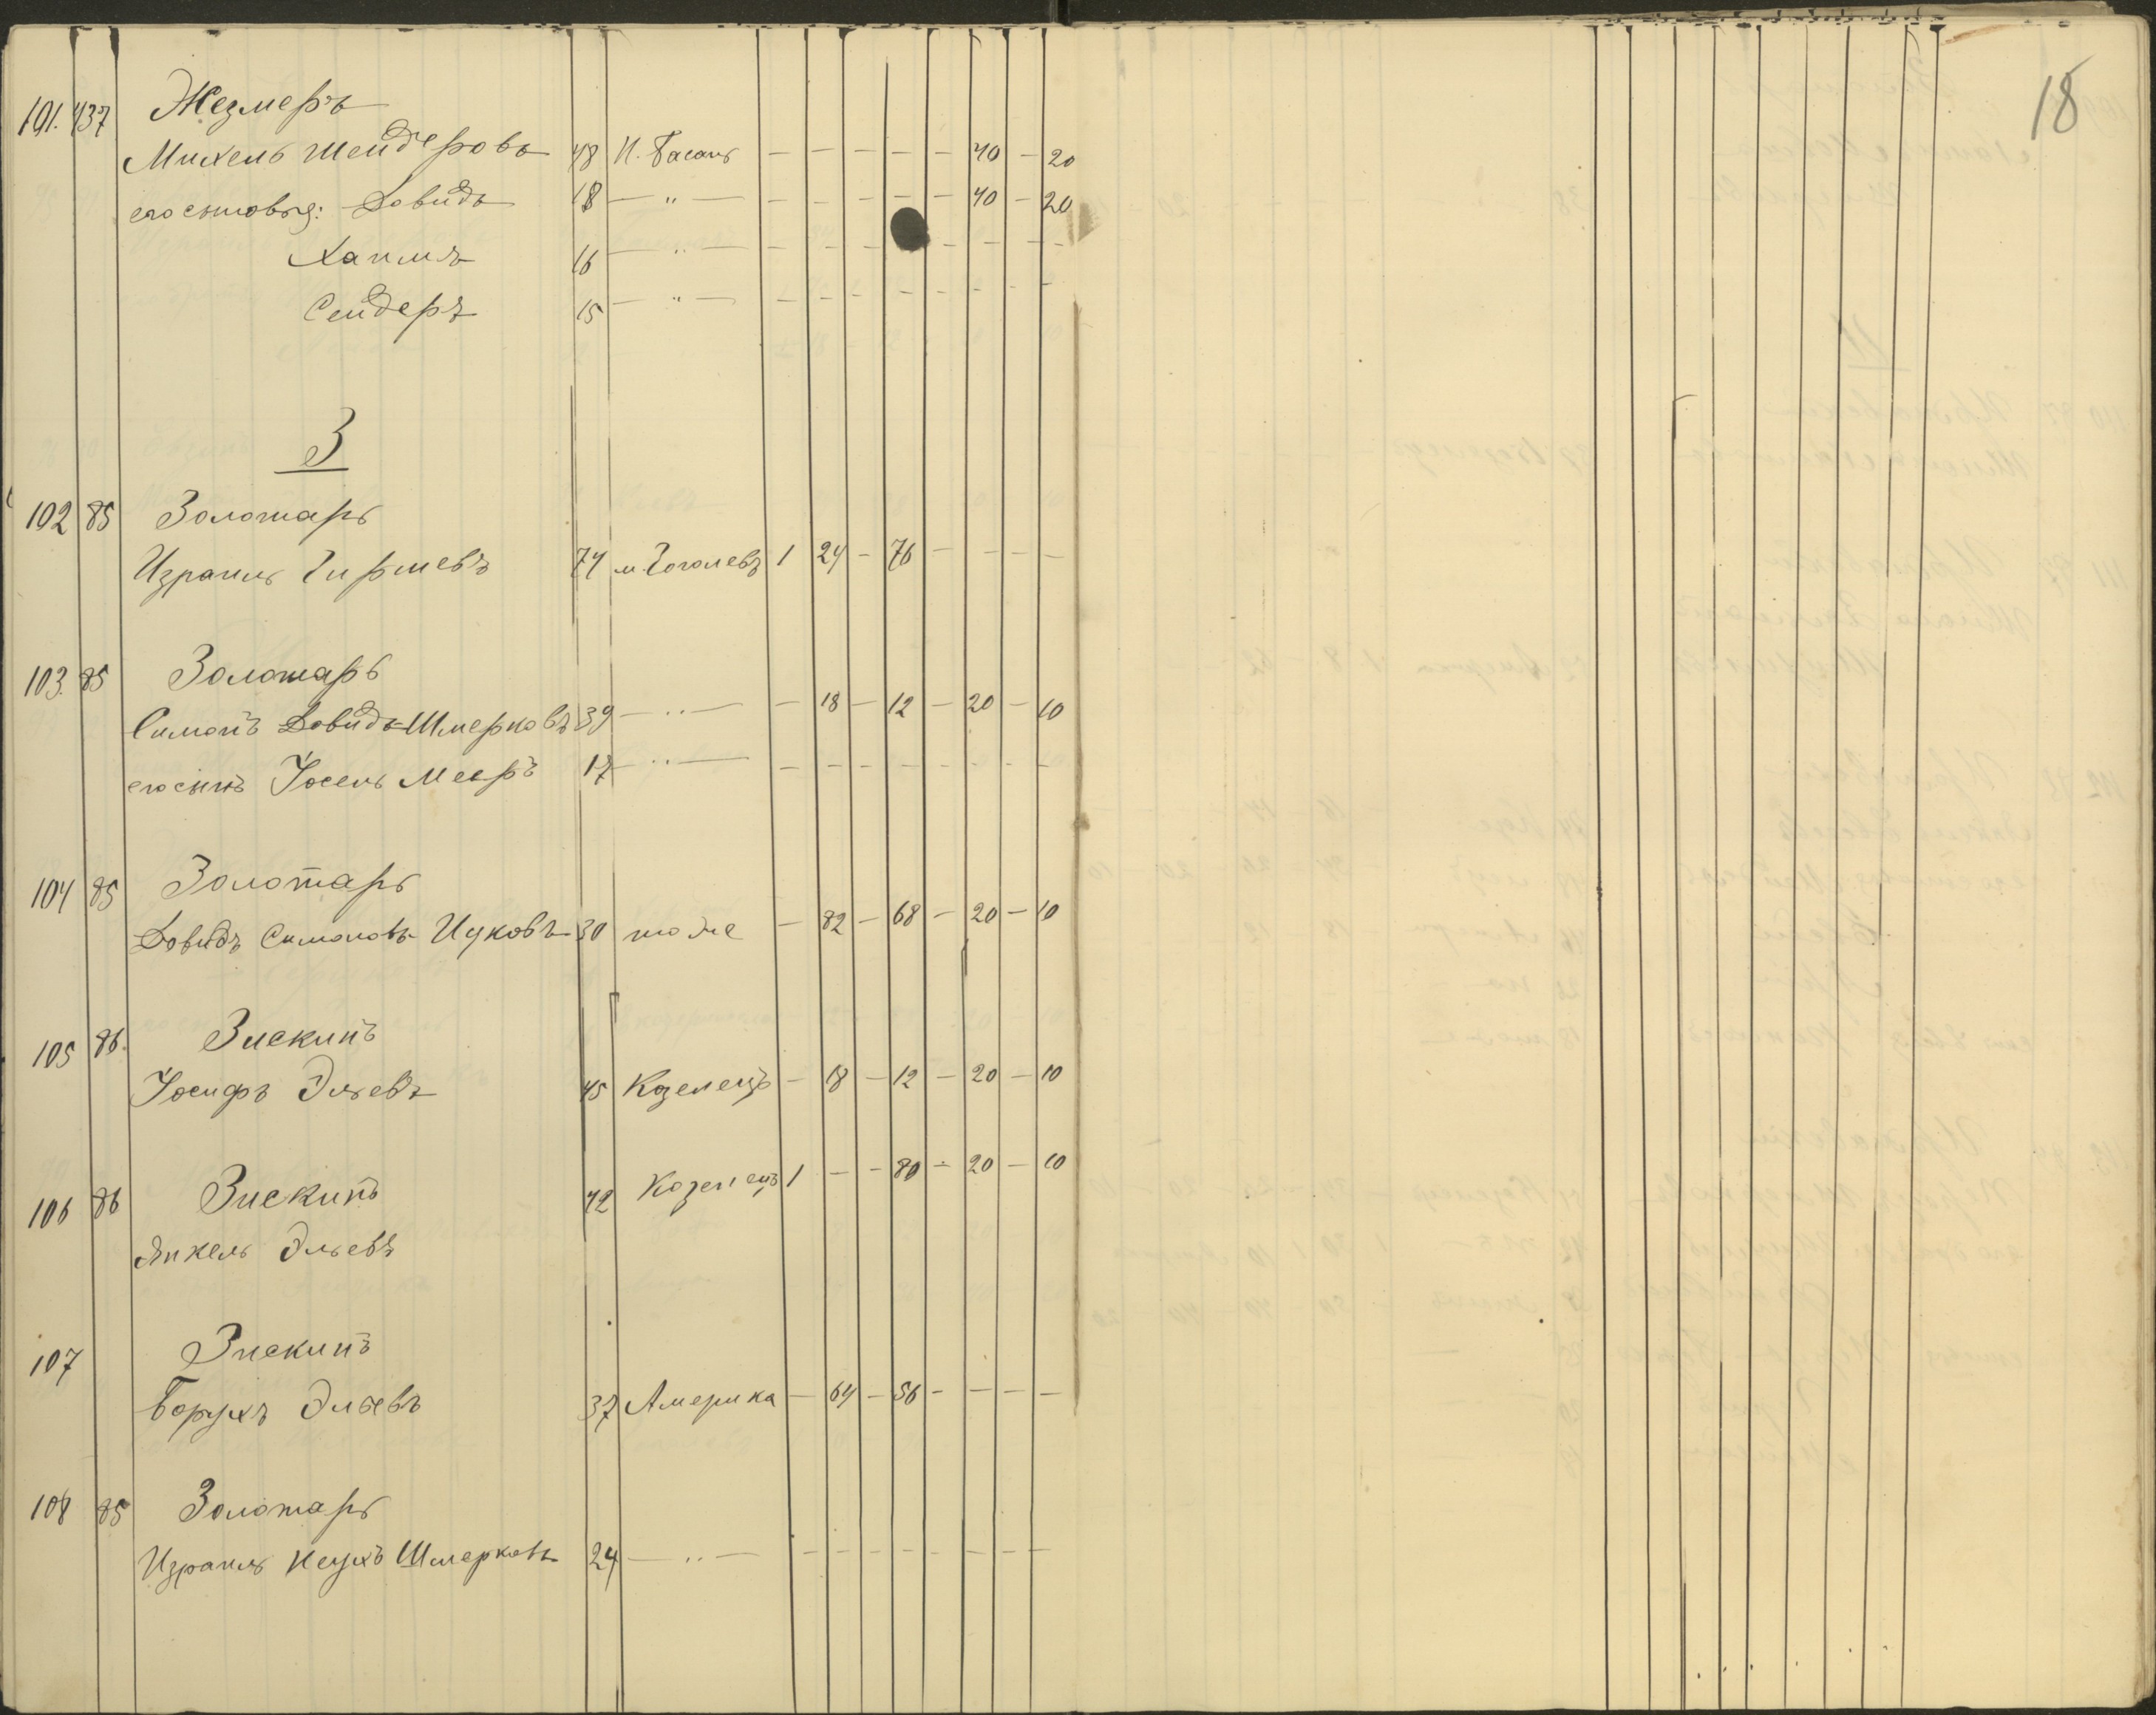 18
101. 437 Жезмеръ
Михель Шендеровъ 48 Н. Басань — — — — — 40 — 20
его сыновья: Довидъ 18 — " — — — — — — 40 — 20
Хаимъ 16 — " — — — — — — — —
Сендеръ 15 — " — — — — — — — — —
З
102 85 Золотарь
Израиль Гиршевъ 74 м. Гоголевъ 1 24 — 76 — — — —
103. 85 Золотарь
Симонъ Довидъ-Шмерковъ 39 — " — — 18 — 12 — 20 — 10
его сынъ Іосель Мееръ 17 — " — — — — — — — — —
104 85 Золотарь
Довидъ Симоновъ Ицковъ 30 тоже — 82 — 68 — 20 — 10
105 86. Зискинъ
Іосифъ Эльевъ 45 Козелецъ — 18 — 12 — 20 — 10
106 86 Зискинъ 42 Козелецъ 1 — — 80 — 20 — 10
Янкель Эльевъ
107 Зискинъ
Борухъ Эльевъ 37 Америка — 64 — 56 — — — —
108 85 Золотарь
Израиль Шмерковъ 24 — " — — — — — — — — —